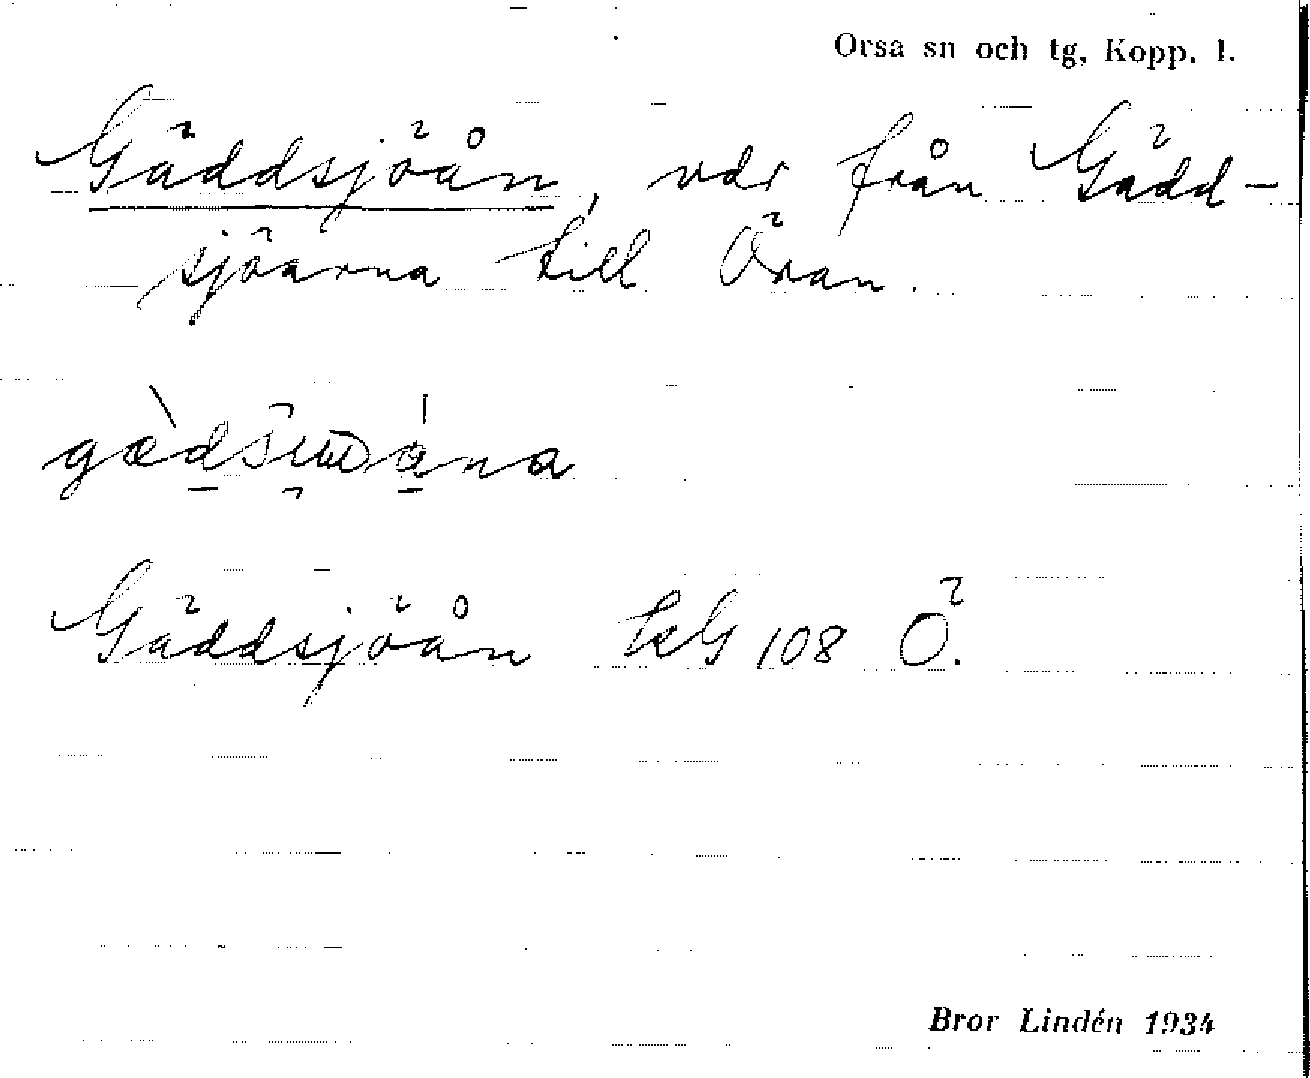 Orsa sn och tg, Kopp. l.
Gäddsjöån, vdr från Gädd-
sjöarna till Öran.
Gäddsjöån LG 108 Ö.
Bror Lindén 1934